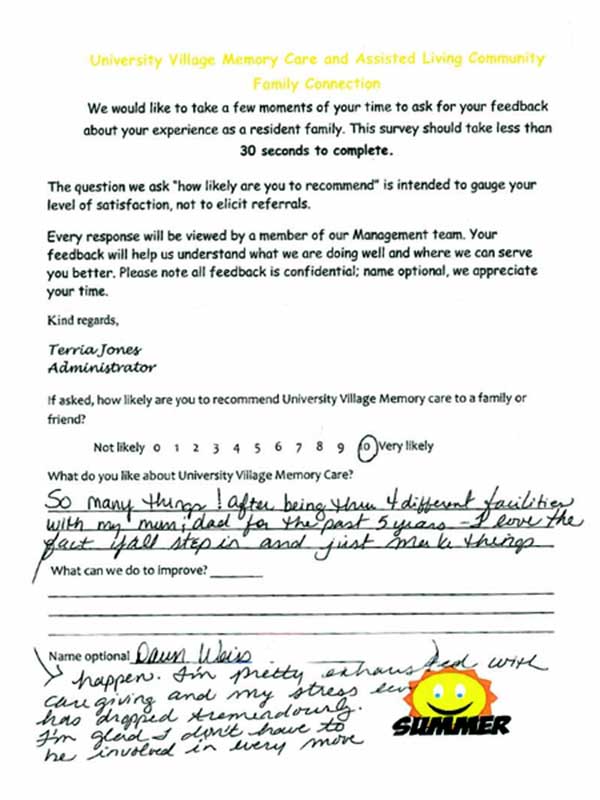 University Village Memory Care and Assisted Living Community
Family Connection
We would like to take a few moments of your time to ask for your feedback
about your experience as a resident family. This survey should take less than
30 seconds to complete.
The question we ask "how likely are you to recommend" is intended to gauge your
level of satisfaction, not to elicit referrals.
Every response will be viewed by a member of our Management team. Your
feedback will help us understand what we are doing well and where we can serve
you better. Please note all feedback is confidential; name optional, we appreciate
your time.
Kind regards,
Terria Jones
Administrator
If asked, how likely are you to recommend University Village Memory care to a family or
friend?
Not likely 0 1 2 3 4 5 6 7 8 9 10 Very likely
What do you like about University Village Memory Care?
So many things! After being thru 4 different facilities
with my mum; dad for the past 5 years - I love the
fact y'all step in and just make things
What can we do to improve?
Name optional Dawn Weiss
happen. I'm pretty exhausted with
care giving and my stress
has dropped tremendously.
I'm glad I don't have to
be involved in every move
SUMMER